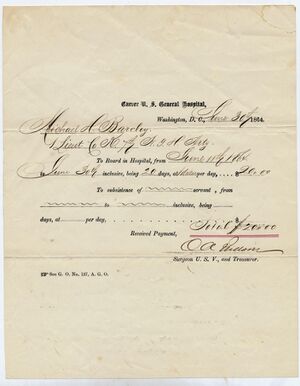 Carver U. S. General Hospital,
Washington, D. C., June 30th 1864.
Michael H. Barclay
1 Lieut Co K, 7th N. Y. H. Arty.
To Board in Hospital, from June 11th 1864
to June 30th inclusive, being 20 days, at per day, $20.00
To subsistence of servant, from
to inclusive, being
days, at per day, $
Total $20.00
Received Payment,
O A Judson
Surgeon U. S. V., and Treasurer.
☞ See G. O. No. 127, A. G. O.